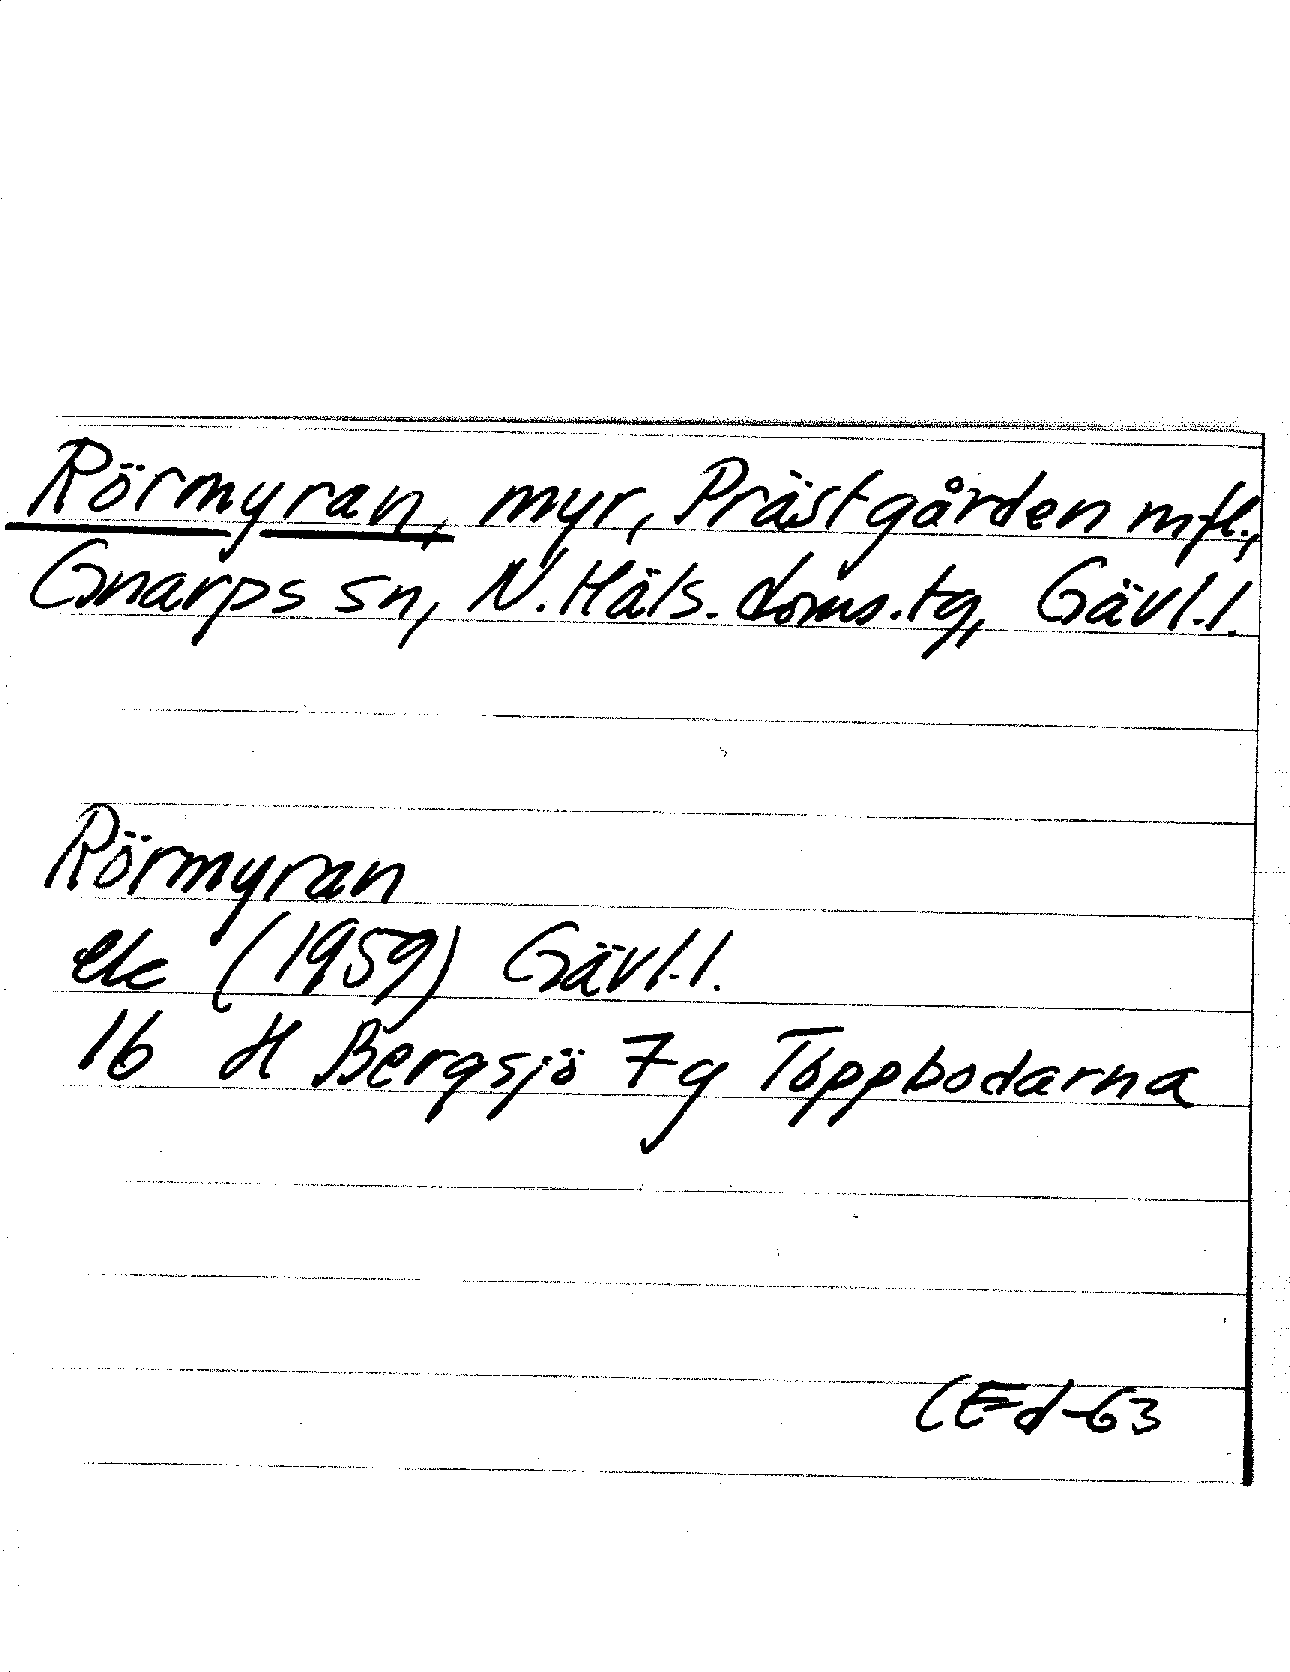 Rörmyran, myr, Prästgården mfl.,
Gnarps sn, N. Häls. doms.tg, Gävl.l.
Rörmyran
ek (1959) Gävl.l.
16 H Bergsjö 7g Toppbodarna
CEd-63